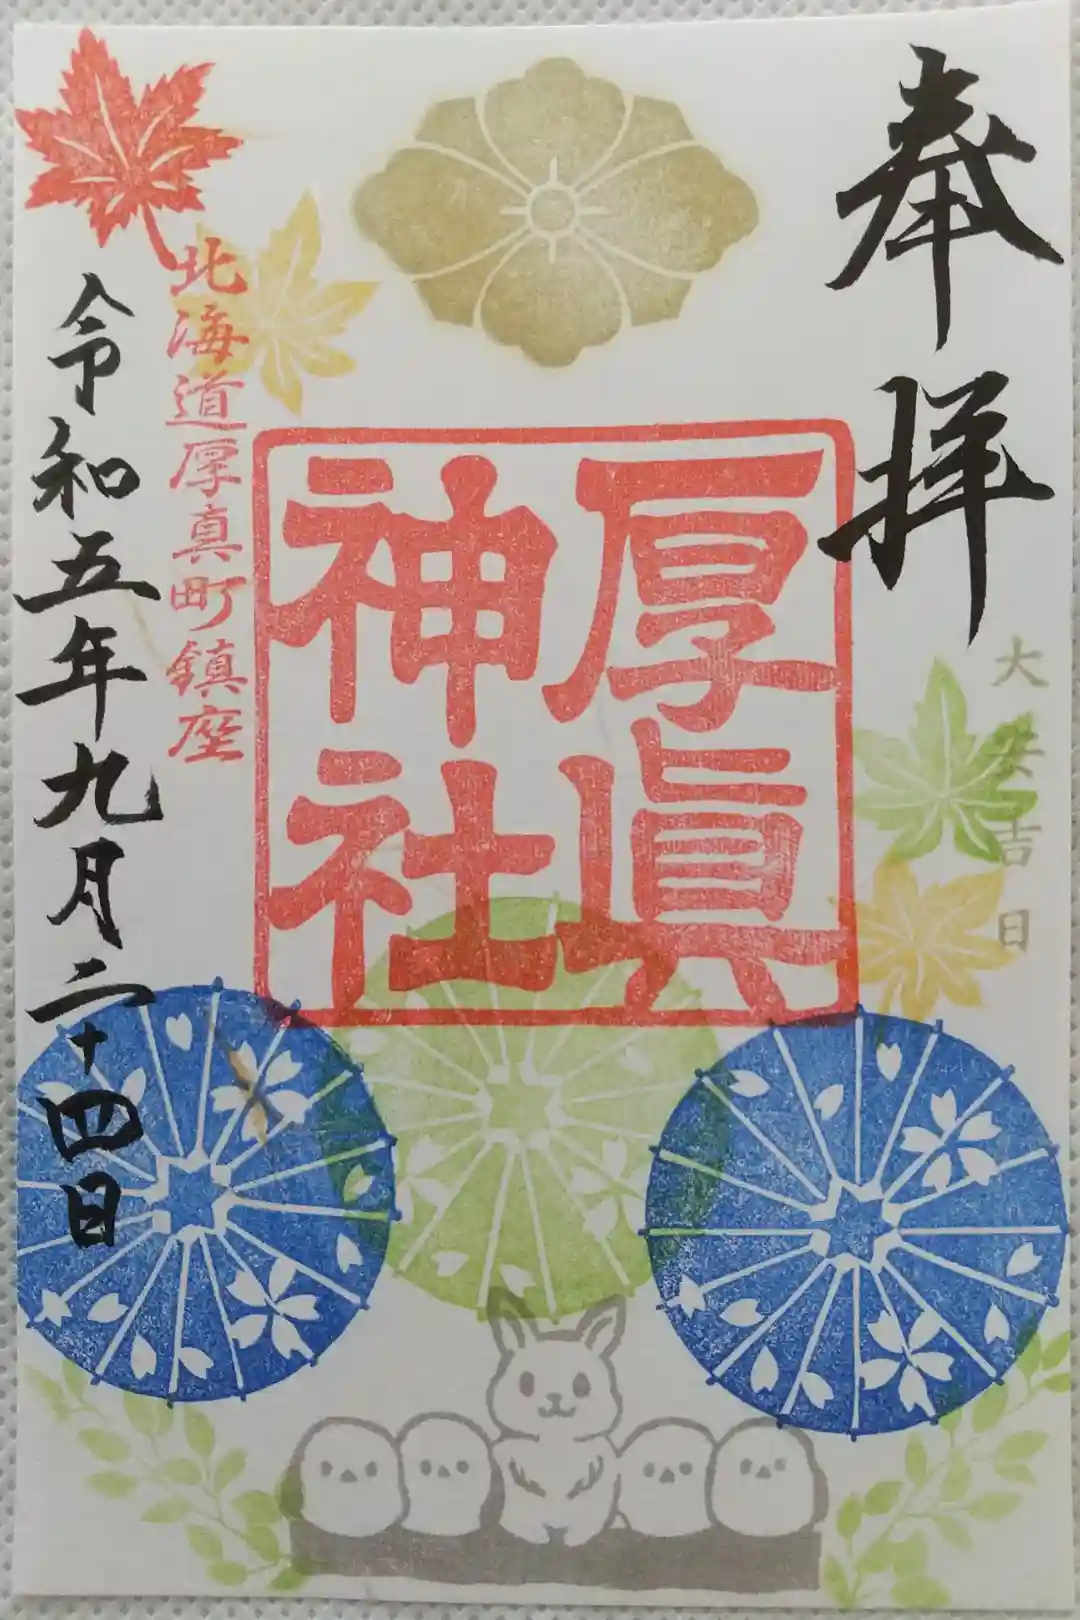 奉拝
大安吉日
厚眞
神社
北海道厚真町鎮座
令和五年九月二十四日